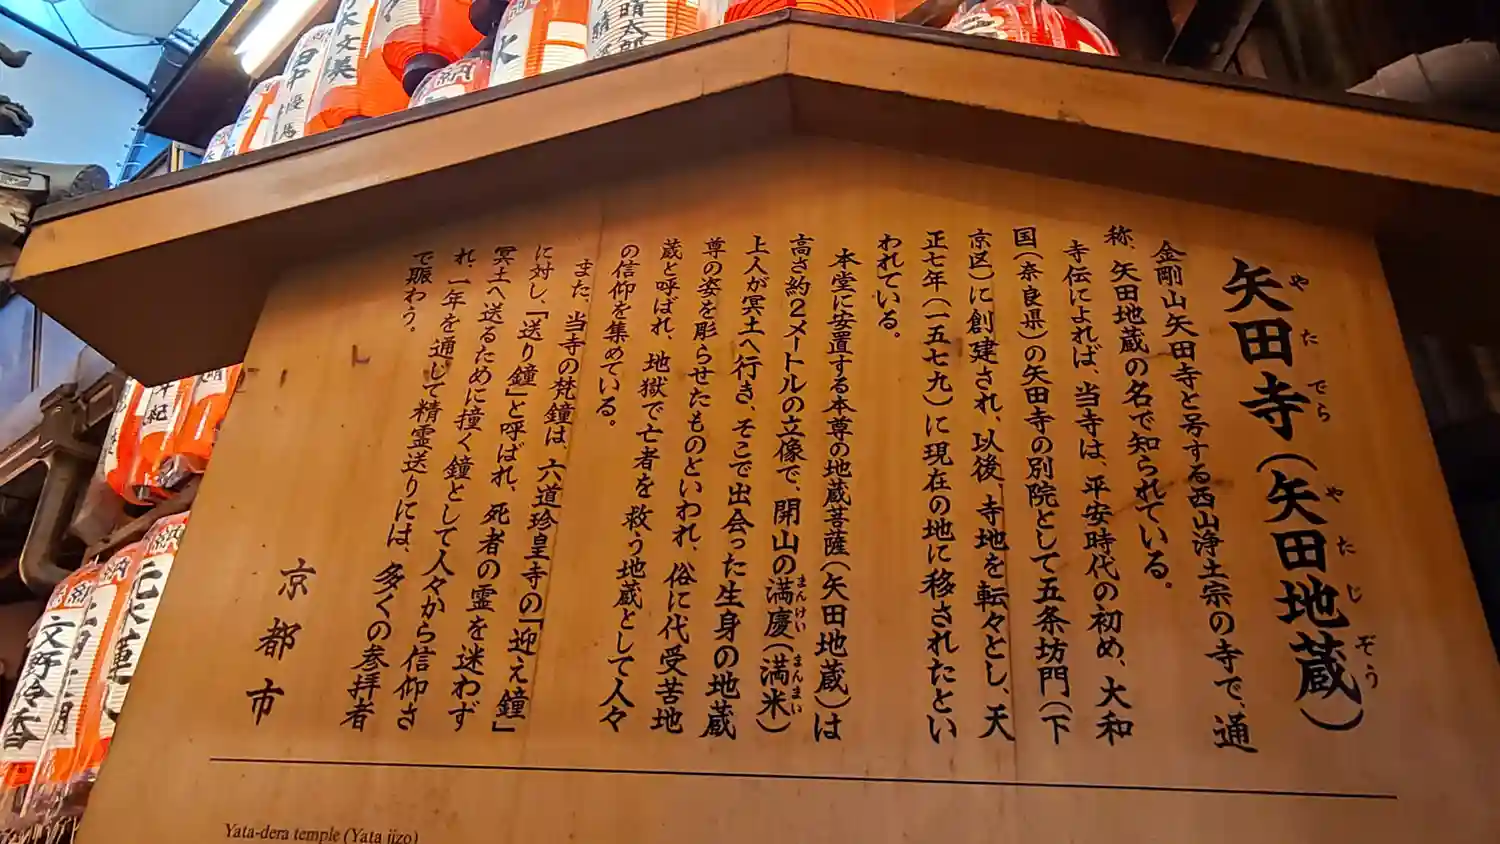 矢田寺（矢田地蔵）
やたでら
やたじぞう
金剛山矢田寺と号する西山浄土宗の寺で、通
称、矢田地蔵の名で知られている。
寺伝によれば、当寺は、平安時代の初め、大和
国（奈良県）の矢田寺の別院として五条坊門（下
京区）に創建され、以後、寺地を転々とし、天
正七年（一五七九）に現在の地に移されたとい
われている。
本堂に安置する本尊の地蔵菩薩（矢田地蔵）は
高さ約２メートルの立像で、開山の満慶（満米）
まんけい
まんまい
上人が冥土へ行き、そこで出会った生身の地蔵
尊の姿を彫らせたものといわれ、俗に代受苦地
蔵と呼ばれ、地獄で亡者を救う地蔵として人々
の信仰を集めている。
また、当寺の梵鐘は、六道珍皇寺の「迎え鐘」
に対し、「送り鐘」と呼ばれ、死者の霊を迷わず
冥土へ送るために撞く鐘として人々から信仰さ
れ、一年を通じて精霊送りには、多くの参拝者
で賑わう。
京都市
Yata-dera temple (Yata jizo)
田中優馬
文美
晴太郎
納